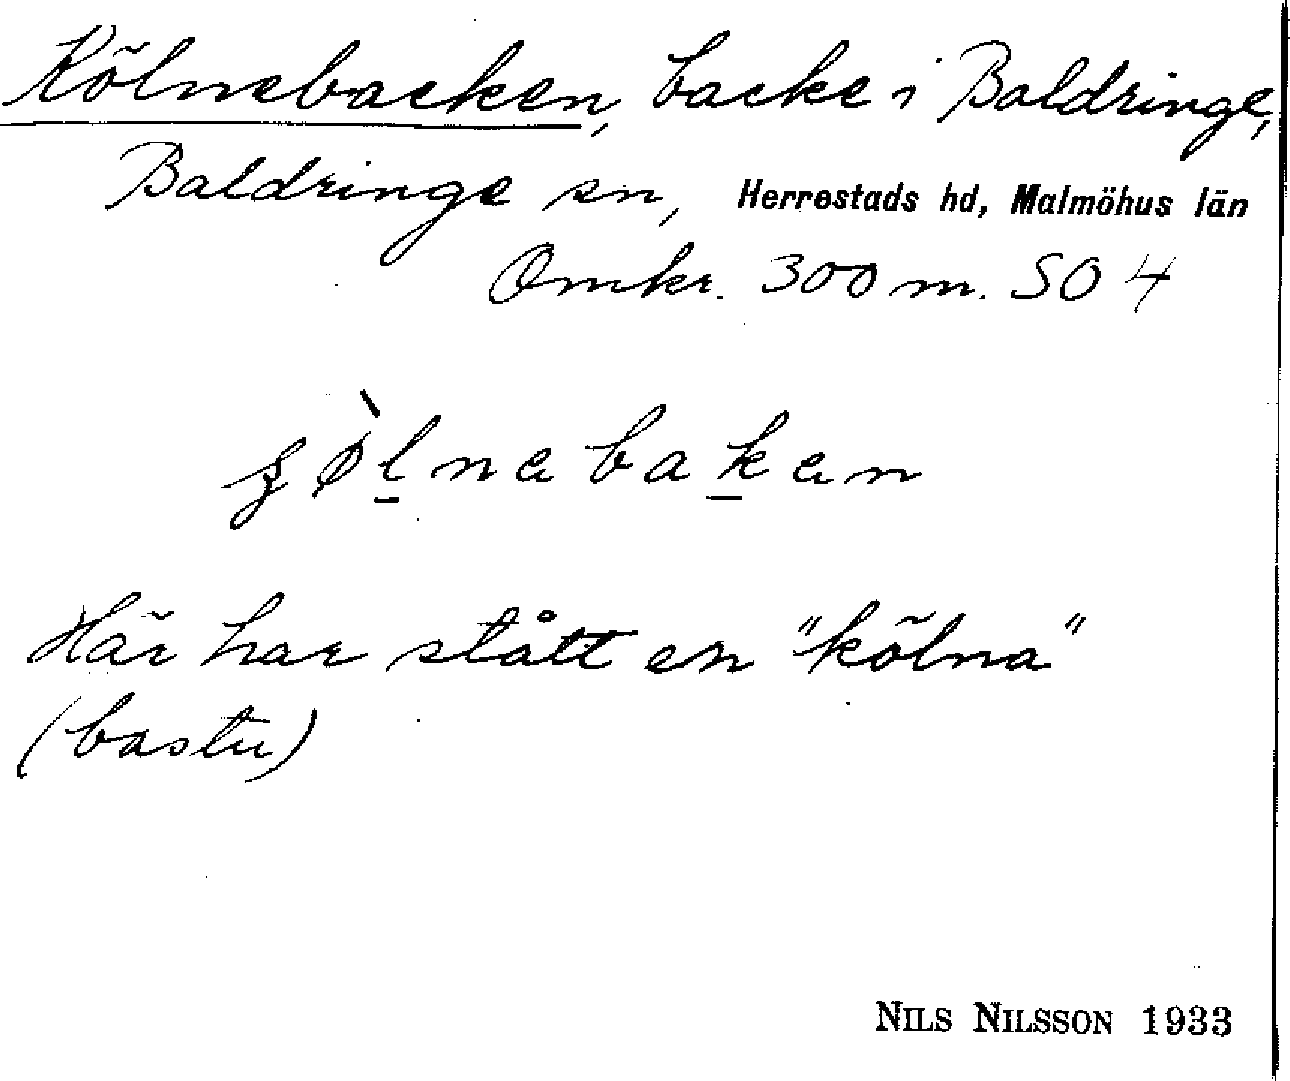 Kölnebacken, backe i Baldringe,
Baldringe sn, Herrestads hd, Malmöhus län
Omkr. 300 m. SO 4
Här har stått en "kölna"
(bastu)
NILS NILSSON 1933